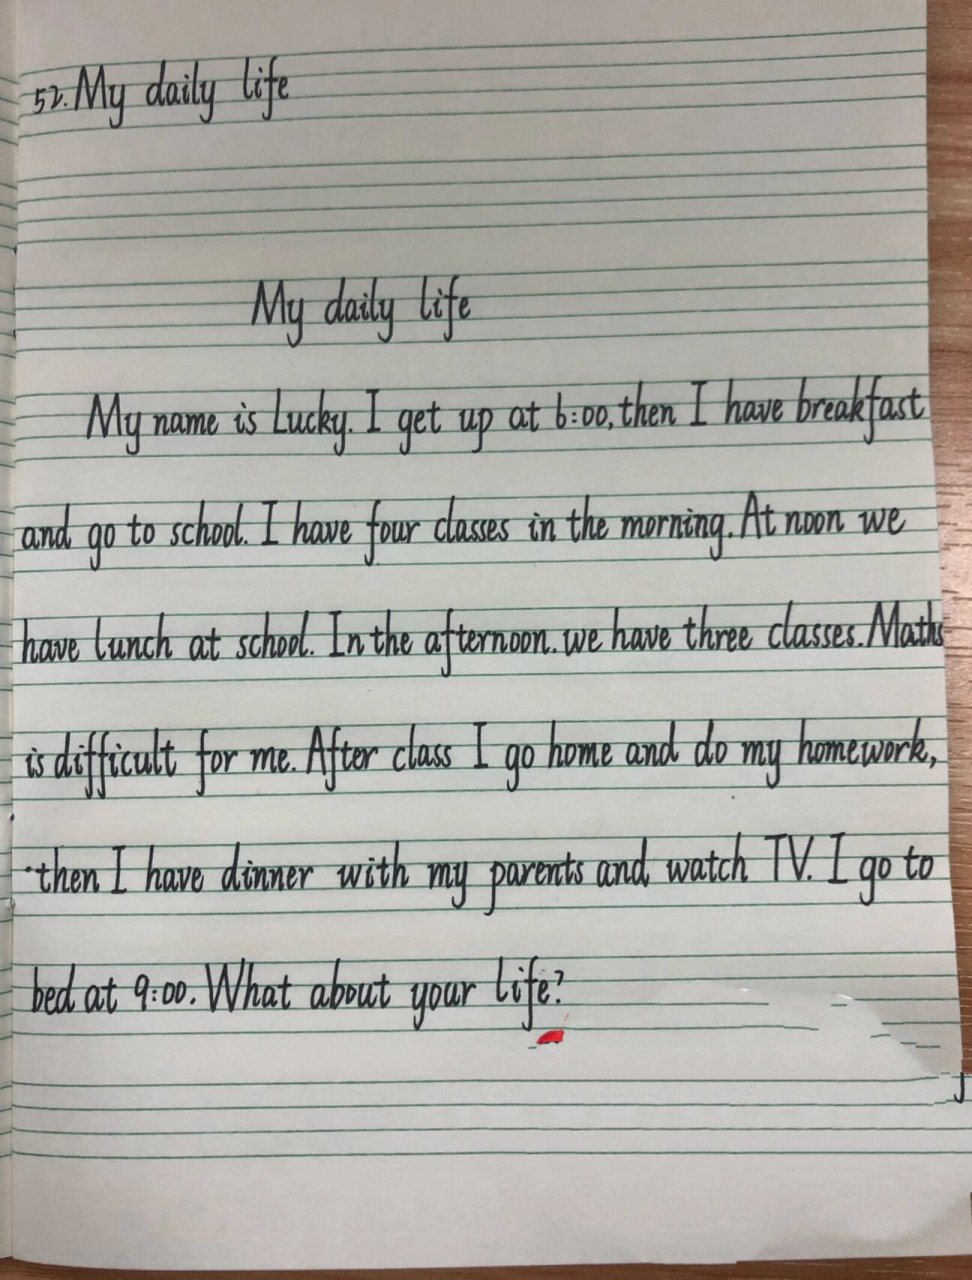 52. My daily life
My daily life
My name is Lucky. I get up at 6:00, then I have breakfast
and go to school. I have four classes in the morning. At noon we
have lunch at school. In the afternoon. we have three classes. Maths
is difficult for me. After class I go home and do my homework,
then I have dinner with my parents and watch TV. I go to
bed at 9:00. What about your life?